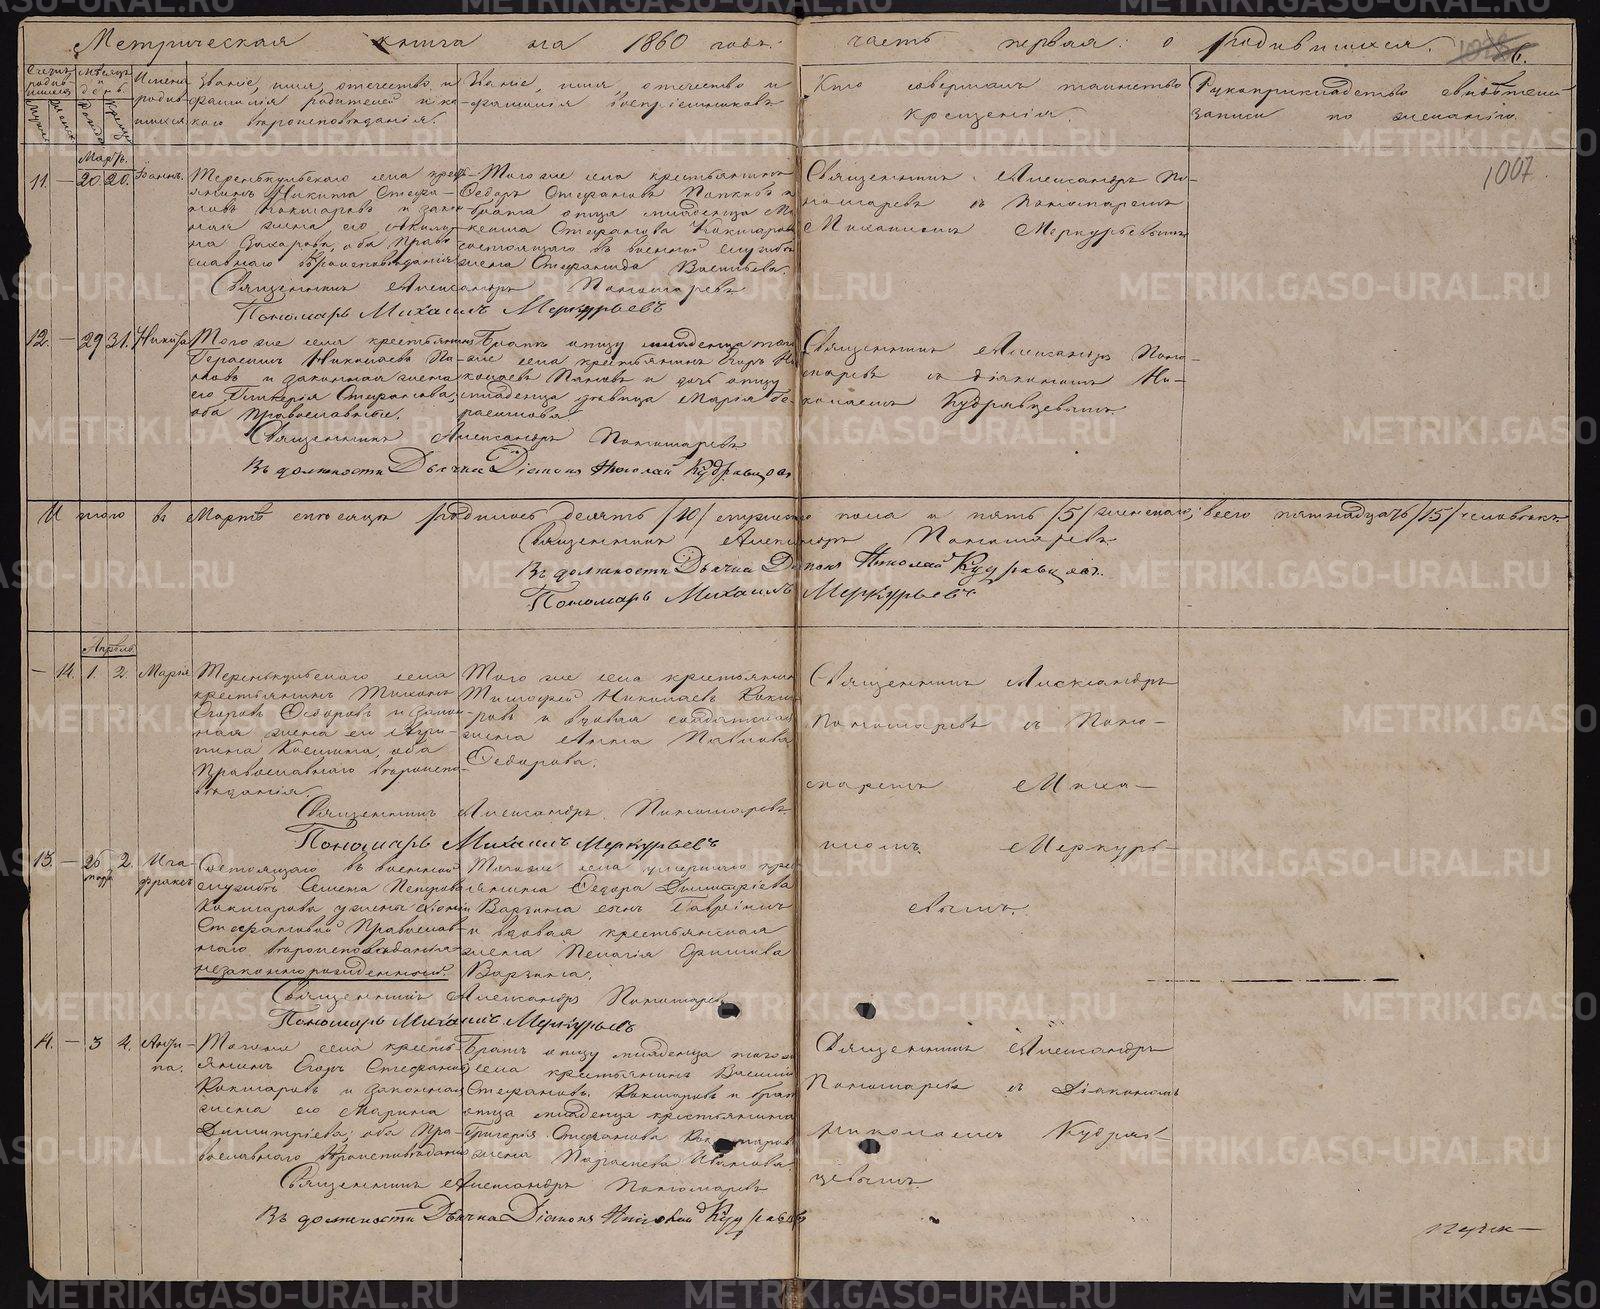 Метрическая книга на 1860 годъ. часть первая: о родившихся.
6.
1007.
Счетъ родившихся
Мѣсяцъ и день.
Имена родившихся.
Званіе, имя, отечество и фамилія родителей и какого вѣроисповѣданія.
Званіе, имя, отечество и фамилія воспріемниковъ
Кто совершалъ таинство крещенія.
Рукоприкладство свидѣтелей записи по желанію.
Мартъ.
11. — 20. 20.
Теренькульскаго села крестьянинъ Никита Стефа-
новъ Кокшаровъ и закон-
ная жена его Акили-
на Захарова, оба Право-
славнаго вѣроисповѣданія.
Того же села крестьянинъ
Ѳедоръ Стефановъ
брата отца младенца
Стефанова Кокшарова
состоящаго въ военной службѣ
жена Стефанида Васильева.
Священникъ Александръ По-
номаревъ съ Пономаремъ
Михаиломъ Меркурьевымъ
Священникъ Александръ Пономаревъ
Пономарь Михаилъ Меркурьевъ
12. — 29 31. Никита
Того же села крестьянинъ
Герасимъ Николаевъ Па-
новъ и законная жена
его Гликерія Стефанова,
оба православные.
Братъ отцу младенца того
же села крестьянинъ Егоръ Ни-
колаевъ Пановъ и дочь отцу
младенца дѣвица Марія Ге-
расимова
Священникъ Александръ Поно-
маревъ съ діакономъ Ни-
колаемъ Кудрявцевымъ.
Священникъ Александръ Пономаревъ
Въ должности Дьячка Діаконъ Николай Кудрявцовъ
Итого въ Мартѣ мѣсяцѣ родилось десять /10/ мужеска пола и пять /5/ женскаго; всего пятнадцать /15/ человѣкъ.
Священникъ Александръ Пономаревъ.
Въ должности Дьячка Діаконъ Николай Кудрявцовъ.
Пономарь Михаилъ Меркурьевъ
Апрѣль.
— 14. 1. 2. Марія
Теренькульскаго села
крестьянинъ Тихонъ
Егоровъ Ѳедоровъ и закон-
ная жена его Агри-
пина Косьмина, оба
Православнаго вѣроиспо-
вѣданія.
Того же села крестьянинъ
Тимофей Николаевъ Кокша-
ровъ и вдовая солдатская
жена Анна Павлова
Ѳедорова.
Священникъ Александръ
Пономаревъ съ Поно-
маремъ Миха-
иломъ Меркурь-
евымъ.
Священникъ Александръ Пономаревъ
Пономарь Михаилъ Меркурьевъ
13. — 26 марта 2.
Состоящаго въ военной
службѣ Семена Петрова
Кокшарова у жены
Стефановой Православ-
наго вѣроисповѣданія
незаконнорожденной.
Тогоже села умершаго крес-
тьянина Ѳедора Димитріева
Варзина сынъ Гавріилъ
и вдовая крестьянская
жена Пелагія Ефимова
Варзина.
Священникъ Александръ Пономаревъ
Пономарь Михаилъ Меркурьевъ
14. — 3 4. Анфи-
па.
Тогоже села кресть-
янинъ Егоръ Стефановъ
Кокшаровъ и законная
жена его Марина
Димитріева; оба Пра-
вославнаго вѣроисповѣданія
Братъ отцу младенца тогоже
села крестьянинъ Василій
Стефановъ Кокшаровъ и брата
отца младенца крестьянина
Григорія Стефанова Кокшарова
жена Параскева Иванова
Священникъ Александръ
Пономаревъ съ Діакономъ
Николаемъ Кудряв-
цевымъ.
Священникъ Александръ Пономаревъ
Въ должности Дьячка Діаконъ Николай Кудрявцовъ
METRIKI.GASO-URAL.RU